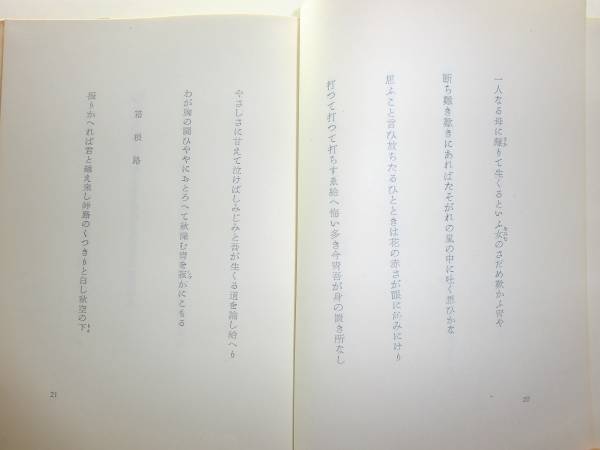 一人なる母に縋りて生くるといふ女のさだめ歎かふ宵や
断ち難き歎きにあればたそがれの風の中に吐く思ひかな
思ふこと言ひ放ちたるひとときは花の赤さが眼に沁みにけり
打つて打つて打ちすゑ給へ悔い多き今宵吾が身の置き所なし
20
やさしさに甘えて泣けばしみじみと吾が生くる道を諭し給へり
わが胸の闘ひややにおとろへて秋深む宵を寂かにこもる
箱根路
振りかへれば君と越え来し峠路のくつきりと白し秋空の下
21